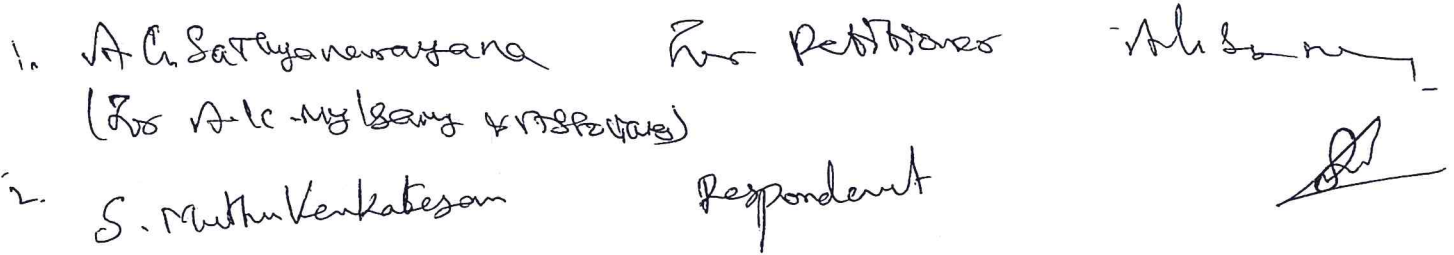 1. A G Sathyanarayana For Petitioner
(For A.K. Mylsamy & Associates)
2. S. Muthu Venkatesan Respondent